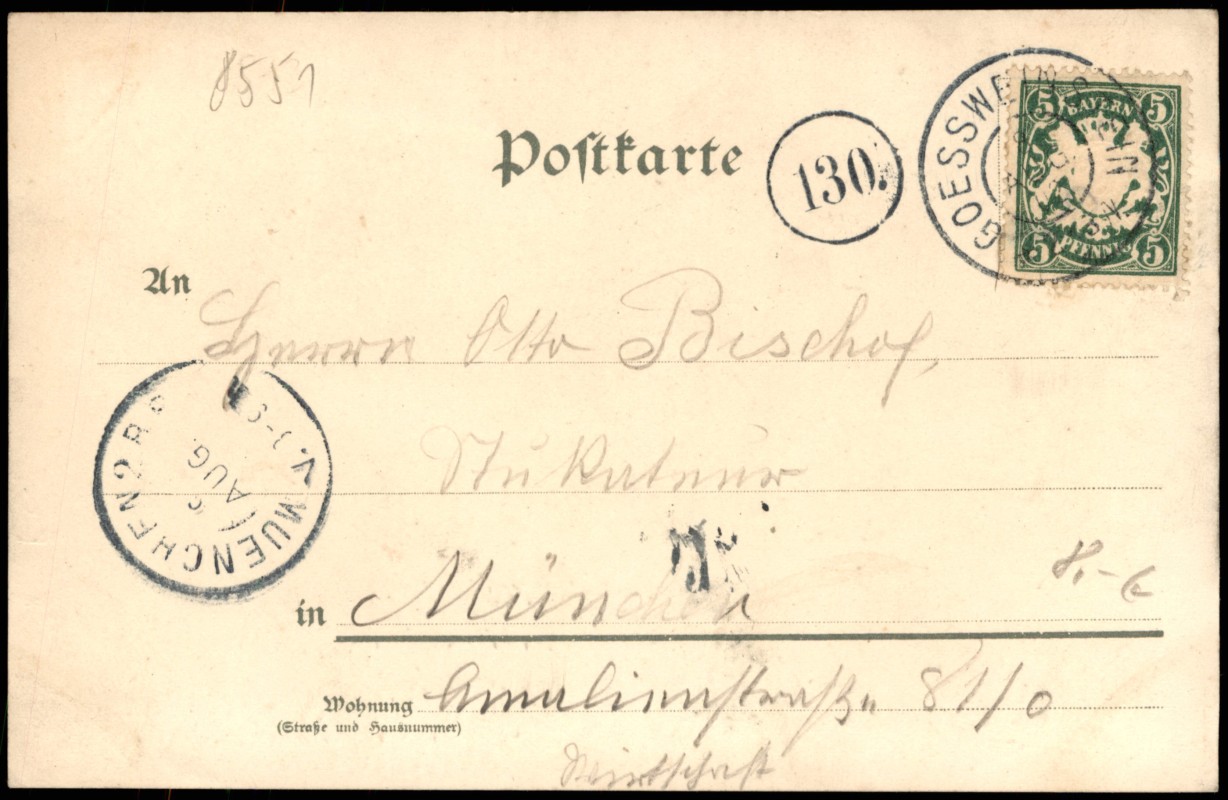 8551
Postkarte
130.
GOESSWEIN
5 BAYERN 5
5 PFENNIG 5
An Herrn Otto Bischof,
MUENCHEN 2 B.P.
AUG
V. 8-9
Stukateur
in München
Wohnung Amalienstraße 81/0
(Straße und Hausnummer)
Wirtschaft